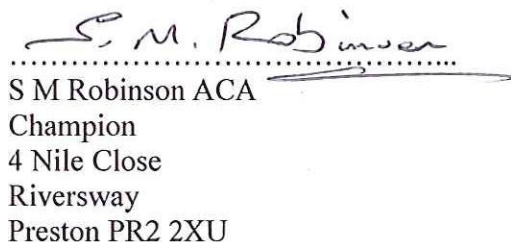 S. M. Robinson
S M Robinson ACA
Champion
4 Nile Close
Riversway
Preston PR2 2XU